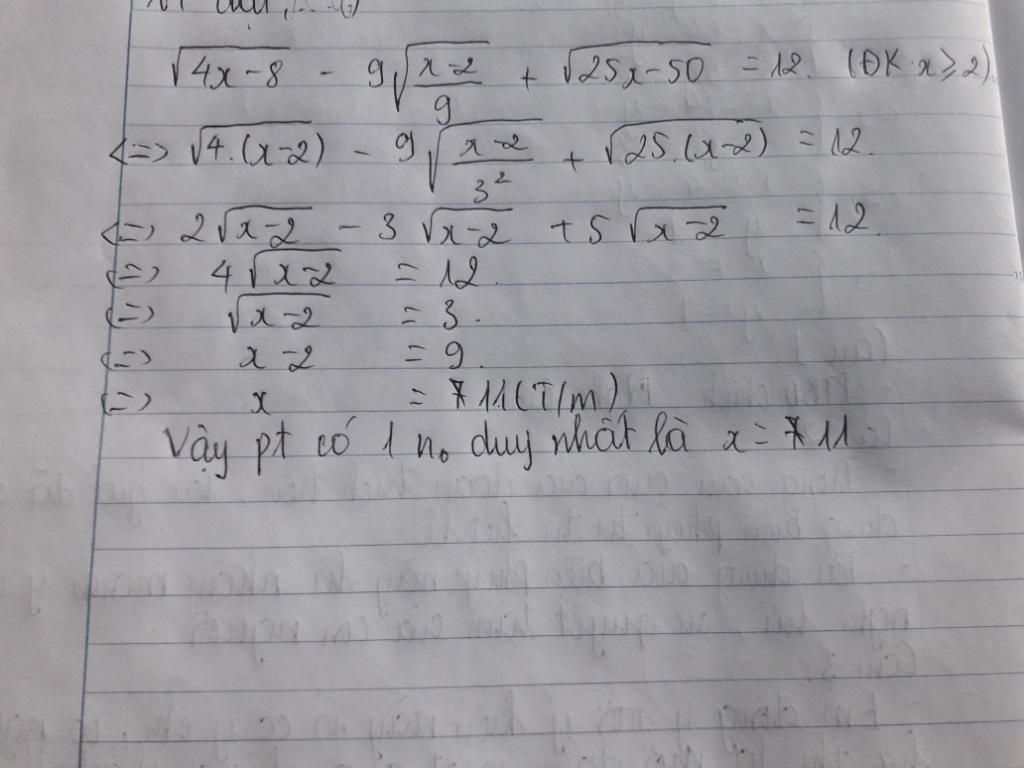 √4x-8 - 9√x-2/9 + √25x-50 = 12. (ĐK: x ≥ 2).
<=> √4.(x-2) - 9√x-2/3² + √25.(x-2) = 12.
<=> 2√x-2 - 3√x-2 + 5√x-2 = 12.
<=> 4√x-2 = 12.
<=> √x-2 = 3.
<=> x-2 = 9.
<=> x = 11 (T/m)
Vậy pt có 1 n₀ duy nhất là x = 11.